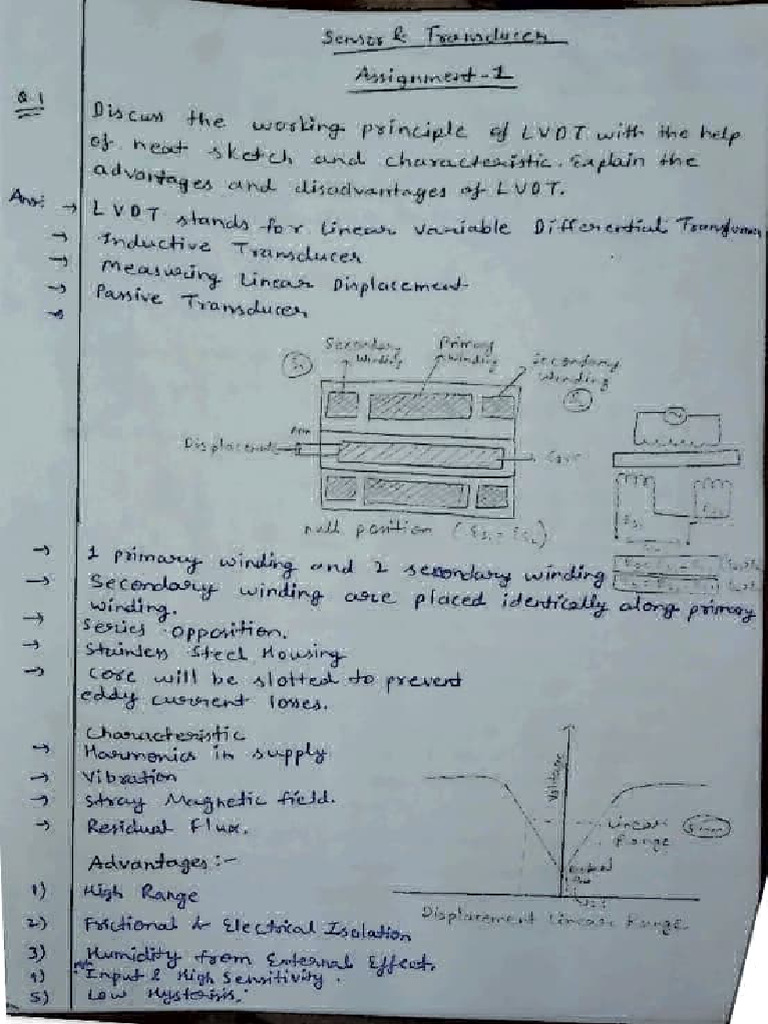 Sensor & Transducer
Assignment-1
Q.1
Discuss the working principle of LVDT with the help
of neat sketch and characteristic. Explain the
advantages and disadvantages of LVDT.
Ans: → LVDT stands for Linear Variable Differential
→ Inductive Transducer
→ Measuring Linear Displacement
→ Passive Transducer
→
Secondary Winding
Primary Winding
Secondary Winding
S1
Arm
Displacement
Core
Null position
→ 1 primary winding and 2 secondary winding
→ Secondary winding are placed identically along primary
winding.
→ Series opposition.
→ Stainless Steel Housing
→ Core will be slotted to prevent
eddy current losses.
Characteristic
→ Harmonics in supply
→ Vibration
→ Stray Magnetic field.
→ Residual Flux.
Voltage
Linear Range
Displacement Linear Range.
Advantages :-
1) High Range
2) Frictional & Electrical Isolation
3) Humidity from External Effect.
4) Input & High Sensitivity.
5) Low Hysterisis.